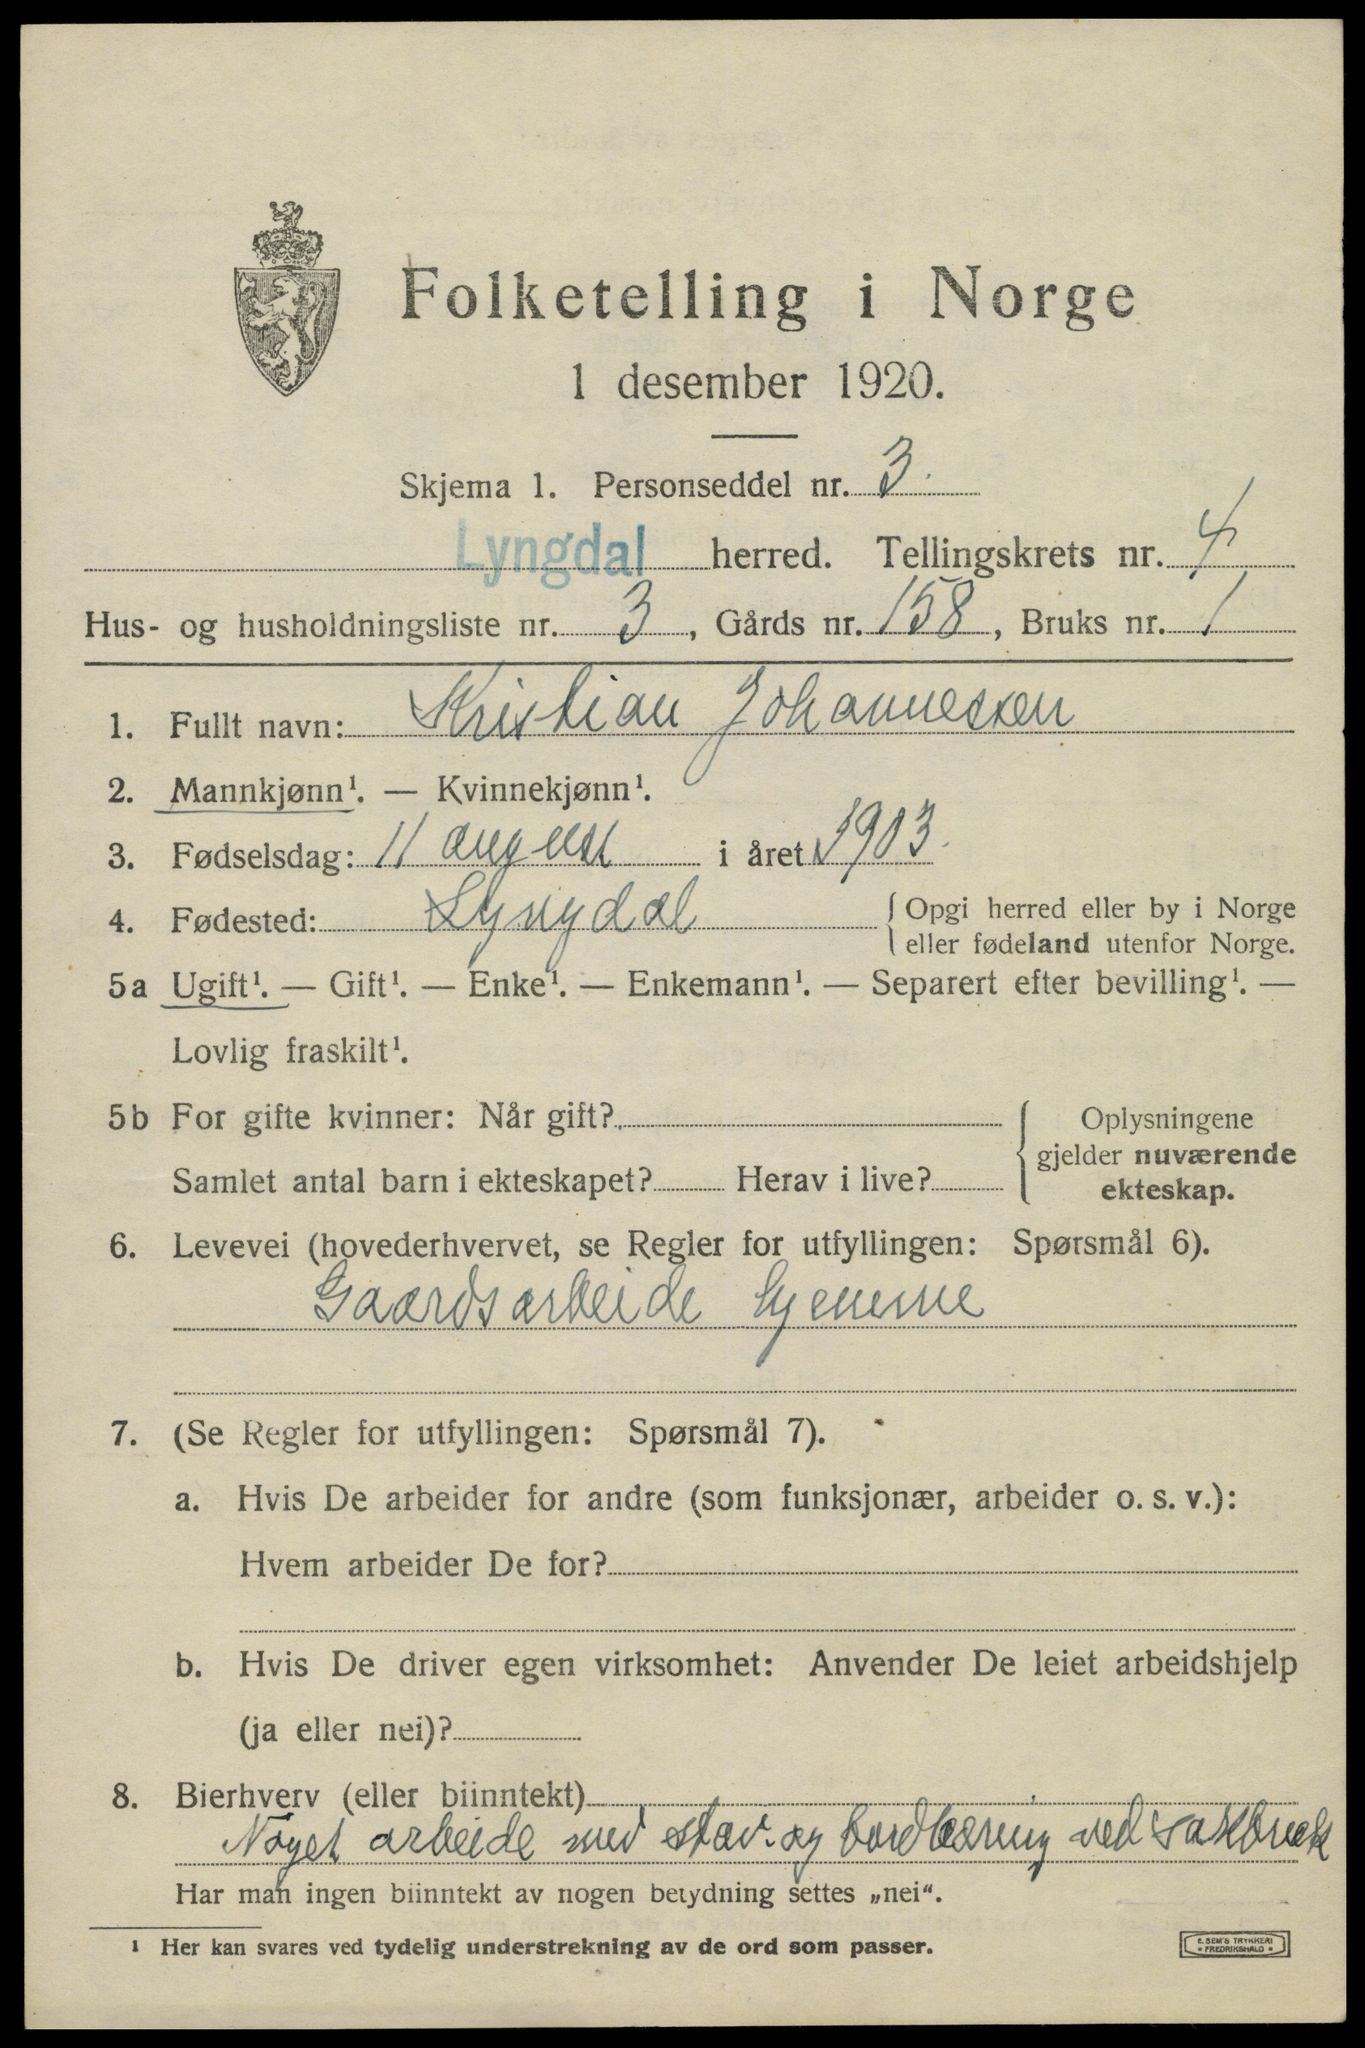 Folketelling i Norge
1 desember 1920.
Skjema 1. Personseddel nr. 3.
Lyngdal herred. Tellingskrets nr. 4
Hus- og husholdningsliste nr. 3, Gårds nr. 158, Bruks nr. 1
1. Fullt navn: Kristian Johannessen
2. Mannkjønn¹. — Kvinnekjønn¹.
3. Fødselsdag: 11 august i året 1903.
4. Fødested: Lyngdal {Opgi herred eller by i Norge
eller fødeland utenfor Norge.
5a Ugift¹. — Gift¹. — Enke¹. — Enkemann¹. — Separert efter bevilling¹. —
Lovlig fraskilt¹.
5b For gifte kvinner: Når gift? Oplysningene
gjelder nuværende
Samlet antal barn i ekteskapet? Herav i live? ekteskap.
6. Levevei (hovederhvervet, se Regler for utfyllingen: Spørsmål 6).
Gaardsarbeide hjemme
7. (Se Regler for utfyllingen: Spørsmål 7).
a. Hvis De arbeider for andre (som funksjonær, arbeider o. s. v.):
Hvem arbeider De for?
b. Hvis De driver egen virksomhet: Anvender De leiet arbeidshjelp
(ja eller nei)?
8. Bierhverv (eller biinntekt)
Noget arbeide med stav- og bordbæring ved sakbruk
Har man ingen biinntekt av nogen betydning settes „nei“.
¹ Her kan svares ved tydelig understrekning av de ord som passer.
E. SEM'S TRYKKERI
* FREDRIKSHALD *